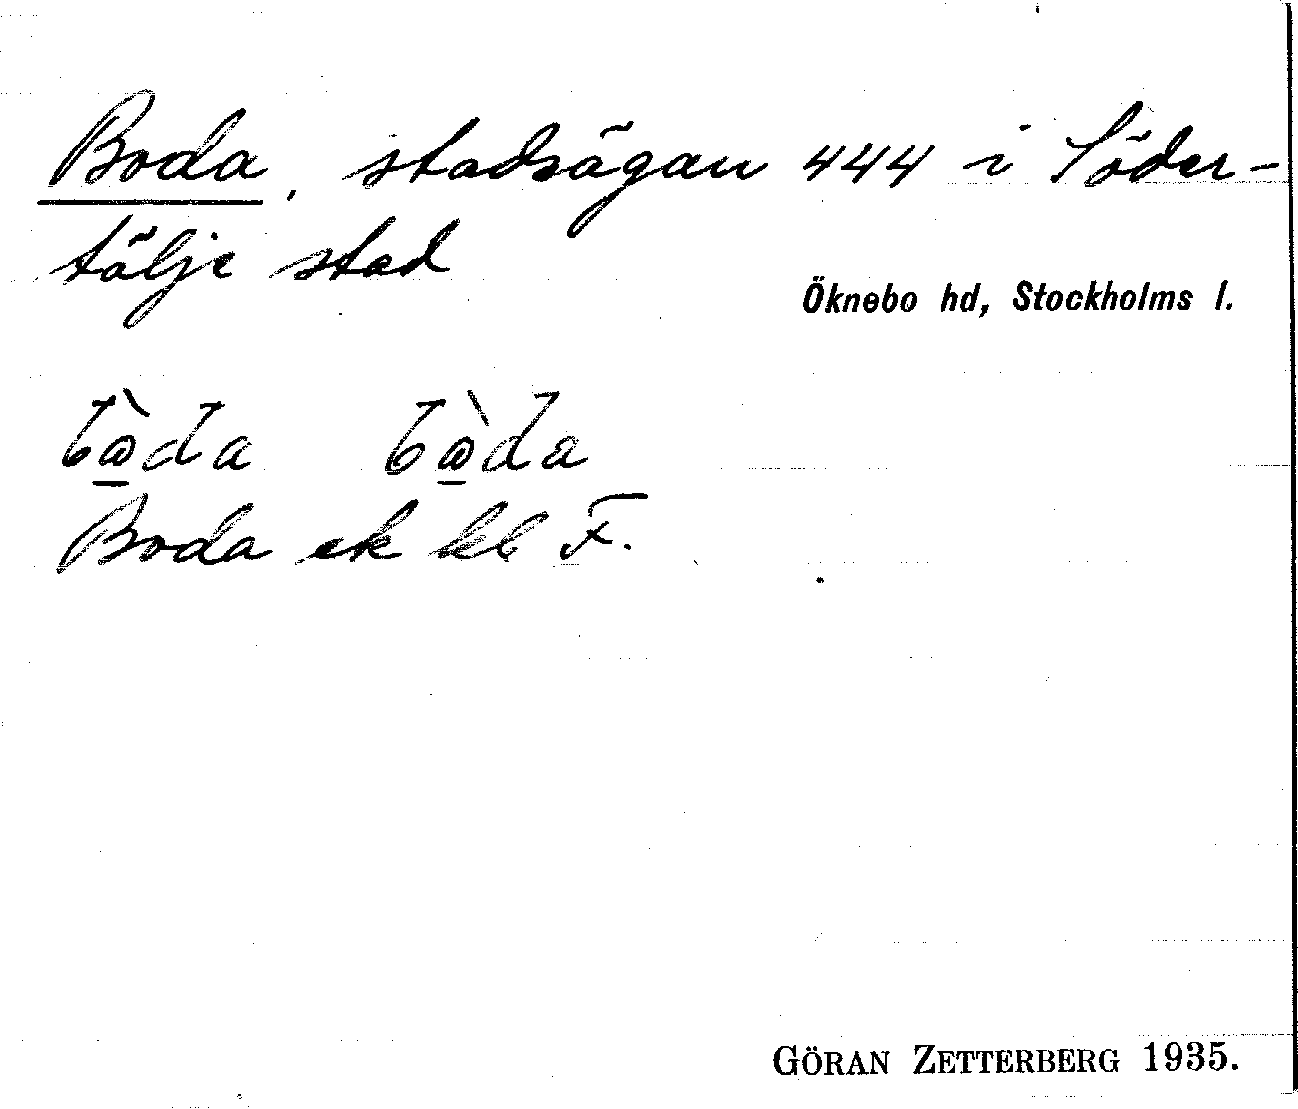 Boda, stadsägan 444 i Söder-
tälje stad
Öknebo hd, Stockholms l.
bὼda bὼda
Boda ek kl F.
GÖRAN ZETTERBERG 1935.